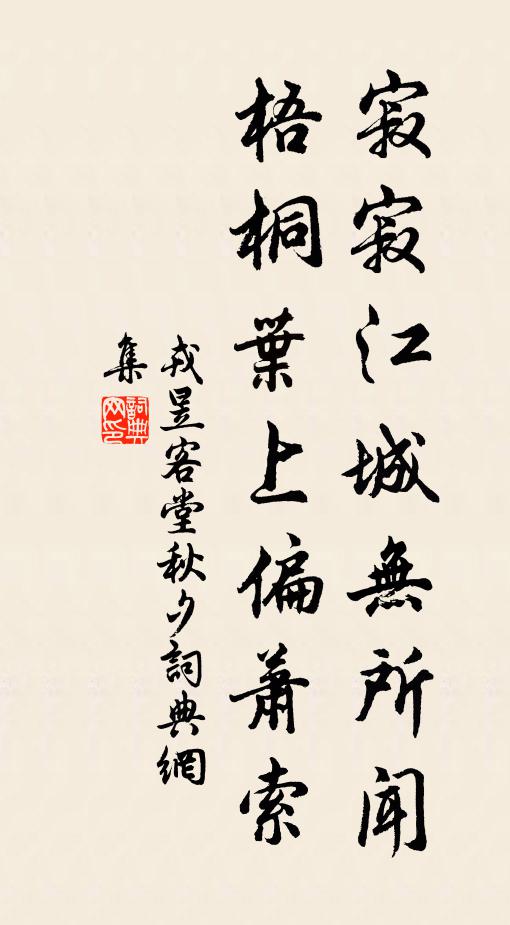 寂寂江城無所聞
梧桐葉上偏蕭索
戎昱客堂秋夕詞典網
集
詞典网印